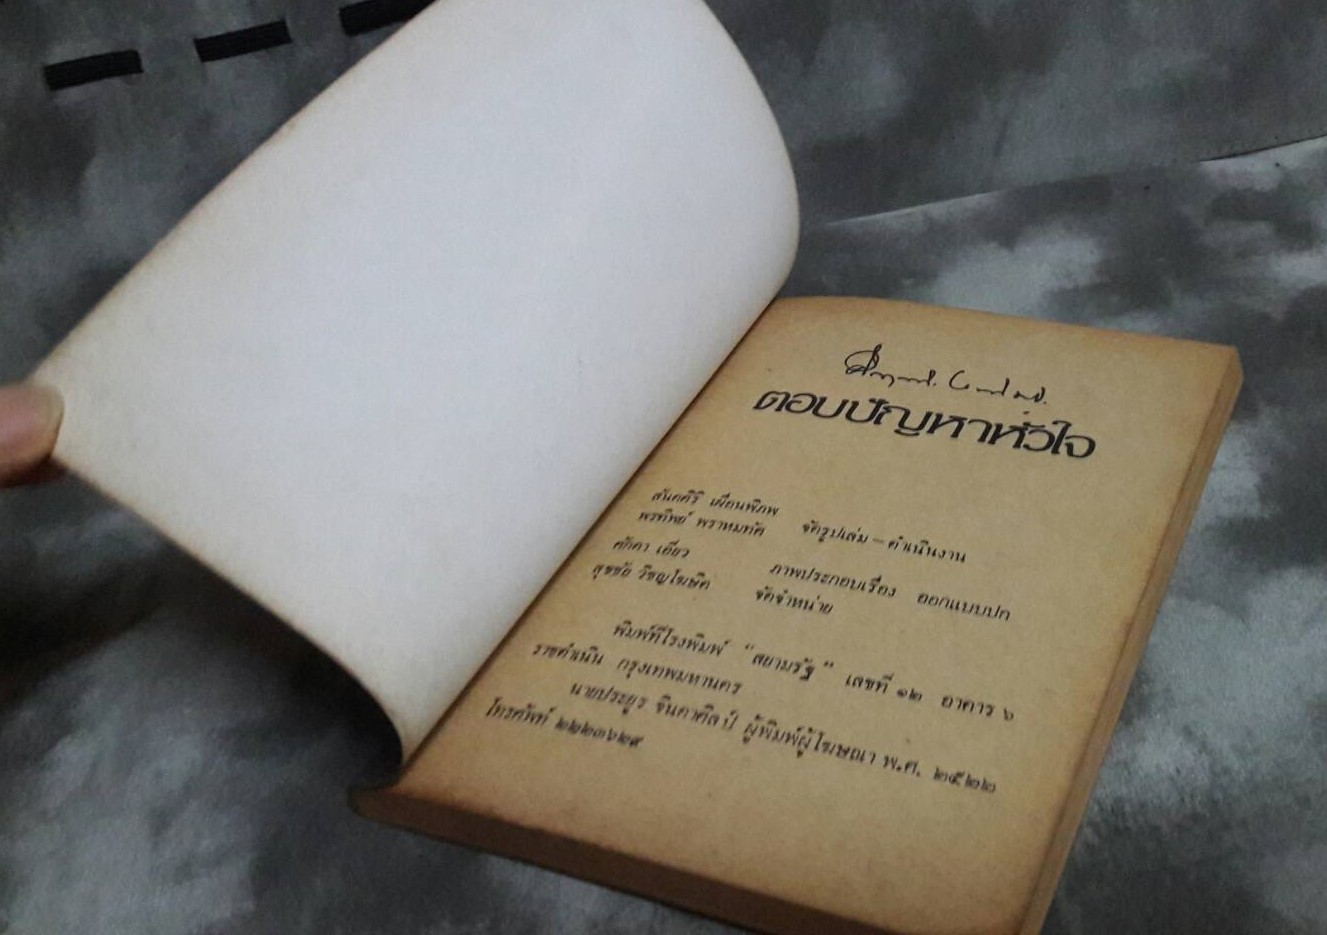 ตอบปัญหาหัวใจ
สันตศิริ เผือนพิภพ
พรทิพย์ พราหมทัต จัดรูปเล่ม – ดำเนินงาน
ศักดา เอียว ภาพประกอบเรื่อง ออกแบบปก
สุขชัย วิชญโฆษิต จัดจำหน่าย
พิมพ์ที่โรงพิมพ์ “สยามรัฐ” เลขที่ ๑๒ อาคาร ๖
ราชดำเนิน กรุงเทพมหานคร
นายประยูร จินดาศิลป์ ผู้พิมพ์ผู้โฆษณา พ.ศ. ๒๕๒๒
โทรศัพท์ ๒๒๒๓๖๒๙